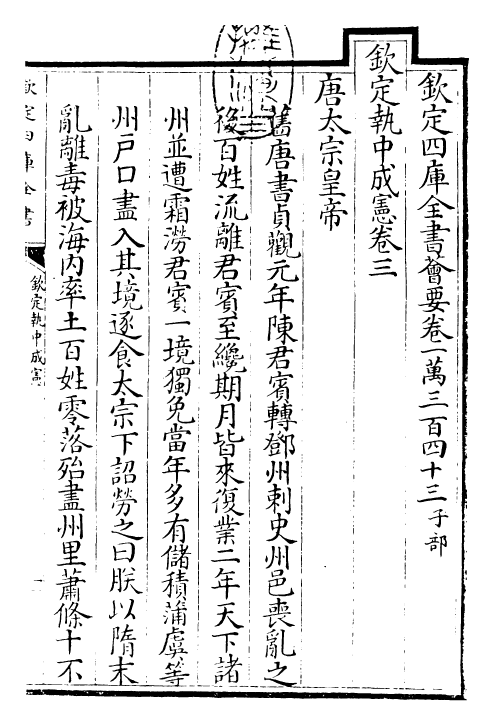 欽定四庫全書薈要卷一萬三百四十三 子部
欽定執中成憲卷三
唐太宗皇帝
舊唐書貞觀元年陳君賓轉鄧州刺史州邑喪亂之
後百姓流離君賓至纔期月皆來復業二年天下諸
州並遭霜澇君賓一境獨免當年多有儲積蒲虞等
州戶口盡入其境逐食太宗下詔勞之曰朕以隋末
亂離毒被海内率土百姓零落殆盡州里蕭條十不
欽定四庫全書
欽定執中成憲
一